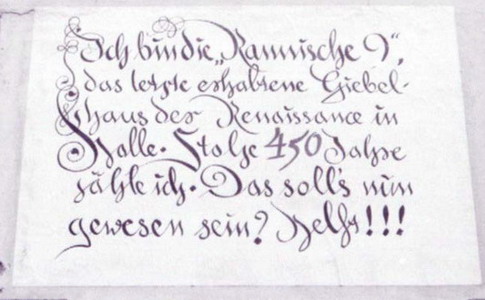 Ich bin die „Rannische 9“,
das letzte erhaltene Giebel-
haus der Renaissance in
Halle. Stolze 450 Jahre
zähle ich. Das soll's nun
gewesen sein? Helft!!!